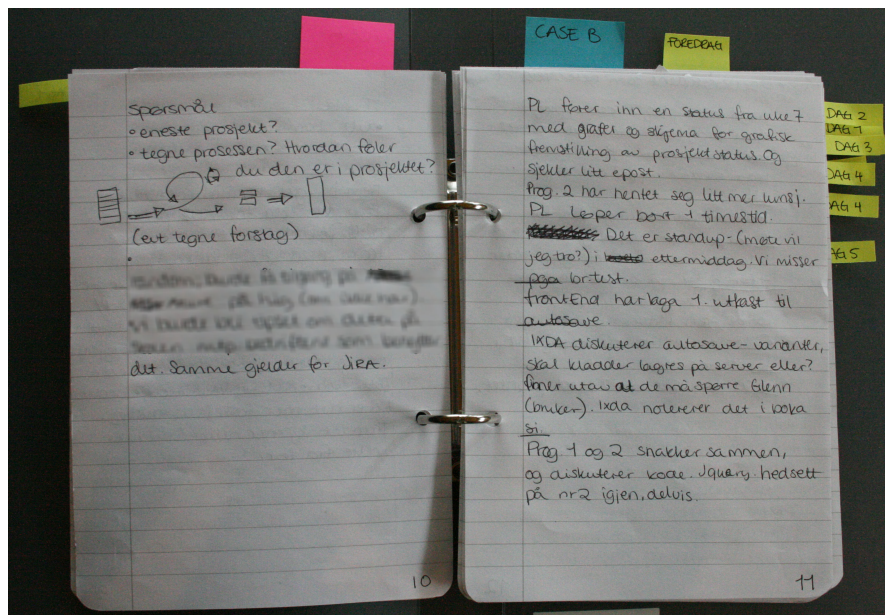 CASE B
FOREDRAG
spørsmål
• eneste prosjekt?
• tegne prosessen? Hvordan føler
du den er i prosjektet?
(evt tegne forslag)
•
det. Samme gjelder for JIRA.
10
PL fører inn en status fra uke 7
med grafer og skjema for grafisk
fremstilling av prosjektstatus. Og
sjekker litt epost.
Prog. 2 har hentet seg litt mer lunsj.
PL løper bort 1 timestid.
Det er standup-(møte vil
jeg tro?) i ettermiddag. Vi misser
pga br.test.
frontEnd har laga 1. utkast til
autosave.
IXDA diskuterer autosave-varianter,
skal kladder lagres på server eller?
finer utav at de må spørre Glenn
(bruker). Ixda noterer det i boka
si.
Prog 1 og 2 snakker sammen,
og diskuterer kode. Jquery. hedsett
på nr 2 igjen, delvis.
11
DAG 2
DAG 1
DAG 3
DAG 4
DAG 4
AG 5